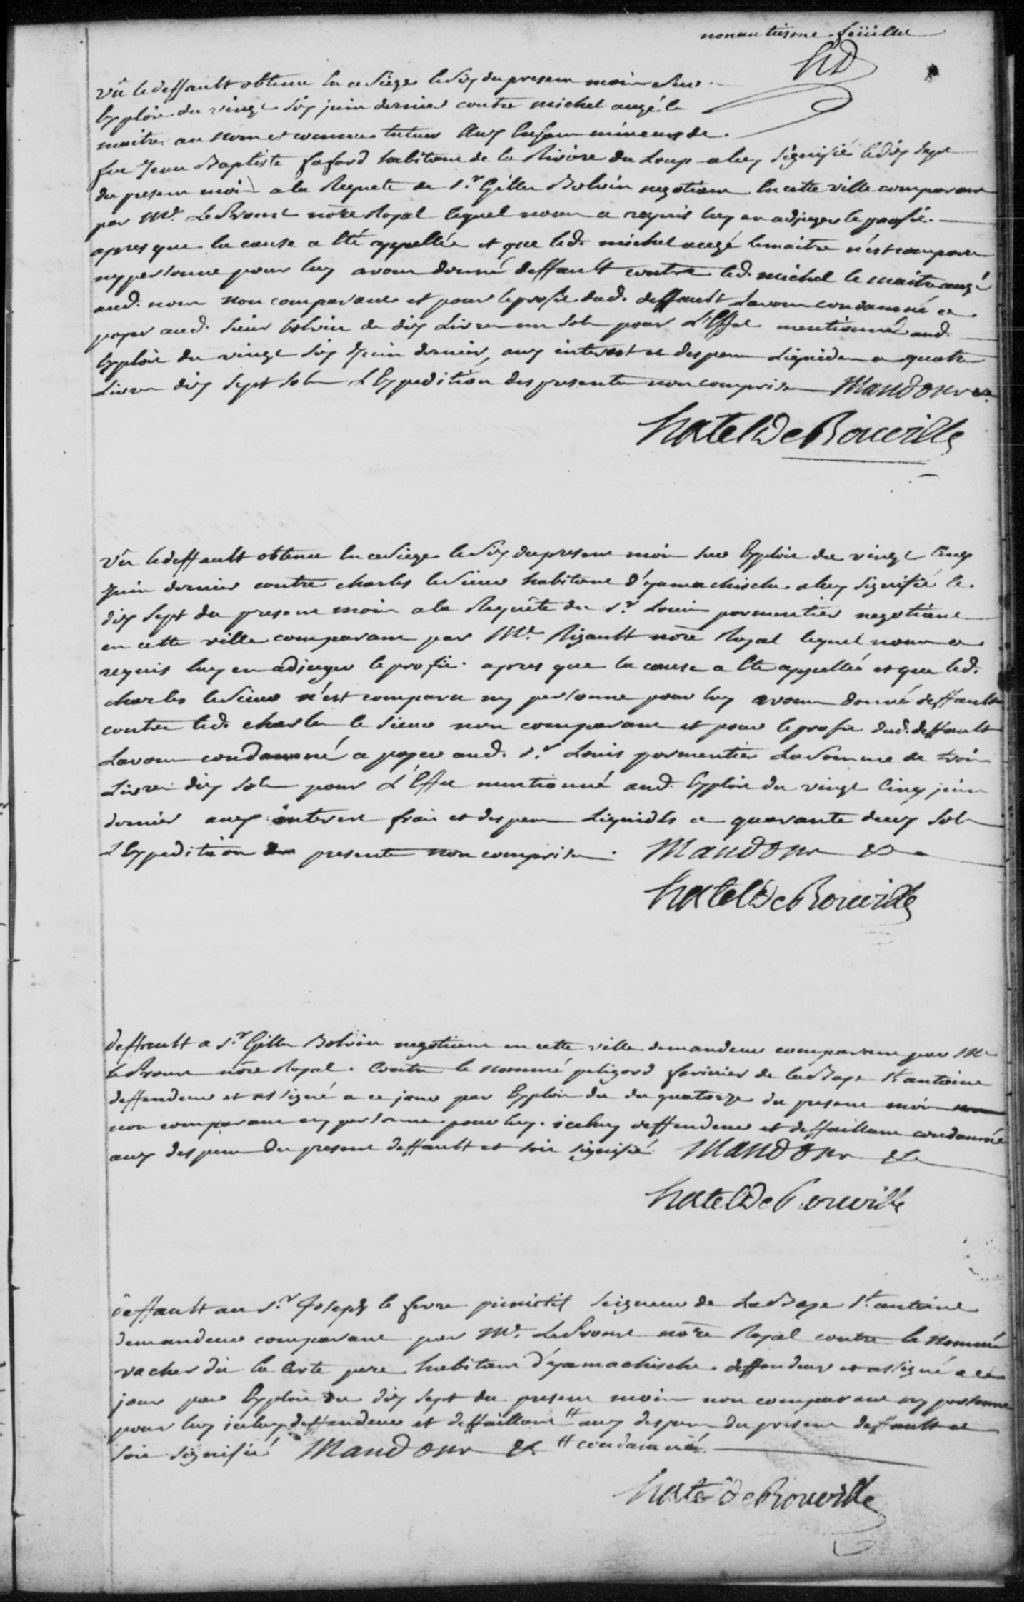 nonantiesme feüillet
HD
Vû le deffault obtenu en ce Siège le Six du present mois sur
Exploit du vingt Six juin dernier contre michel augé le
maitre au nom et comme tuteur aux Enfans mineurs de
feu Jean Baptiste fafard habitant de la Riviere du Loup a luy signifié le dix Sept
du present mois a la Requete de Sr. Gilles Bolvin negotiant En cette ville comparant
par Me. LeProust nore Royal lequel nous a requis luy en adjuger le profit
apres que la cause a Eté appellée et que led. michel augé lemaitre n'est comparu
ny personne pour luy avons donné deffault contre led. michel le maitre augé
aud. nom non comparant et pour le profit dud. deffault Lavons condamné a
payer aud. Sieur bolvin de dix Livres un Sols pour L'Effet mentionné aud.
Exploit du vingt Six Juin dernier, aux interest et despens Liquidés a quatre
Livres dix Sept Sols L'Expedition des presente non comprise Mandons &a
hertel De Rouville
Vû le deffault obtenu En ce Siege le Six du present mois sur Exploit du vingt Cinq
Juin dernier contre charles leSieur habitant d'yamachische a luy signifié le
dix Sept du present mois a la Requête du Sr. Louis parmentier negotiant
en cette ville comparant par Me. Rigault nore Royal lequel nous a
requis luy en adjuger le profit. apres que la cause a Eté appellée et que led.
charles leSieur n'est comparu ny personne pour luy avons donné deffault
contre led. charles le Sieur non comparant et pour le profit dud. deffault
Lavons condamné a payer aud. Sr. Louis parmentier La Somme de trois
Livres dix Sols pour L'Effet mentionné aud. Exploit du vingt Cinq juin
dernier aux interest frais et despens Liquidés a quarante deux Sols
L'Expedition des presente non comprise. Mandons &a
hertel De Rouville
deffault a Sr. Gilles Bolvin negotiant en cette ville demandeur comparant par Me
LeProust nore Royal. Contre le nommé perigord fermier de La Baye St antoine
deffendeur et assigné a ce jour par Exploit du du quatorze du present mois
non comparant ny personne pour luy. iceluy deffendeur et deffaillant condamné
aux despens du present deffault et soit signifié Mandons &a
hertel De Rouville
deffault au Sr. Joseph le fevre Seigneur de La Baye St. antoine
demandeur comparant par Me. LeProust nore Royal contre le nommé
vacher dit la Certe pere habitant d'yamachische deffendeur et assigné a ce
jour par Exploit du dix Sept du present mois non comparant ny personne
pour luy iceluy deffendeur et deffaillant # aux despens du present deffault et
soit signifié Mandons &a # condamné
hertel De Rouville